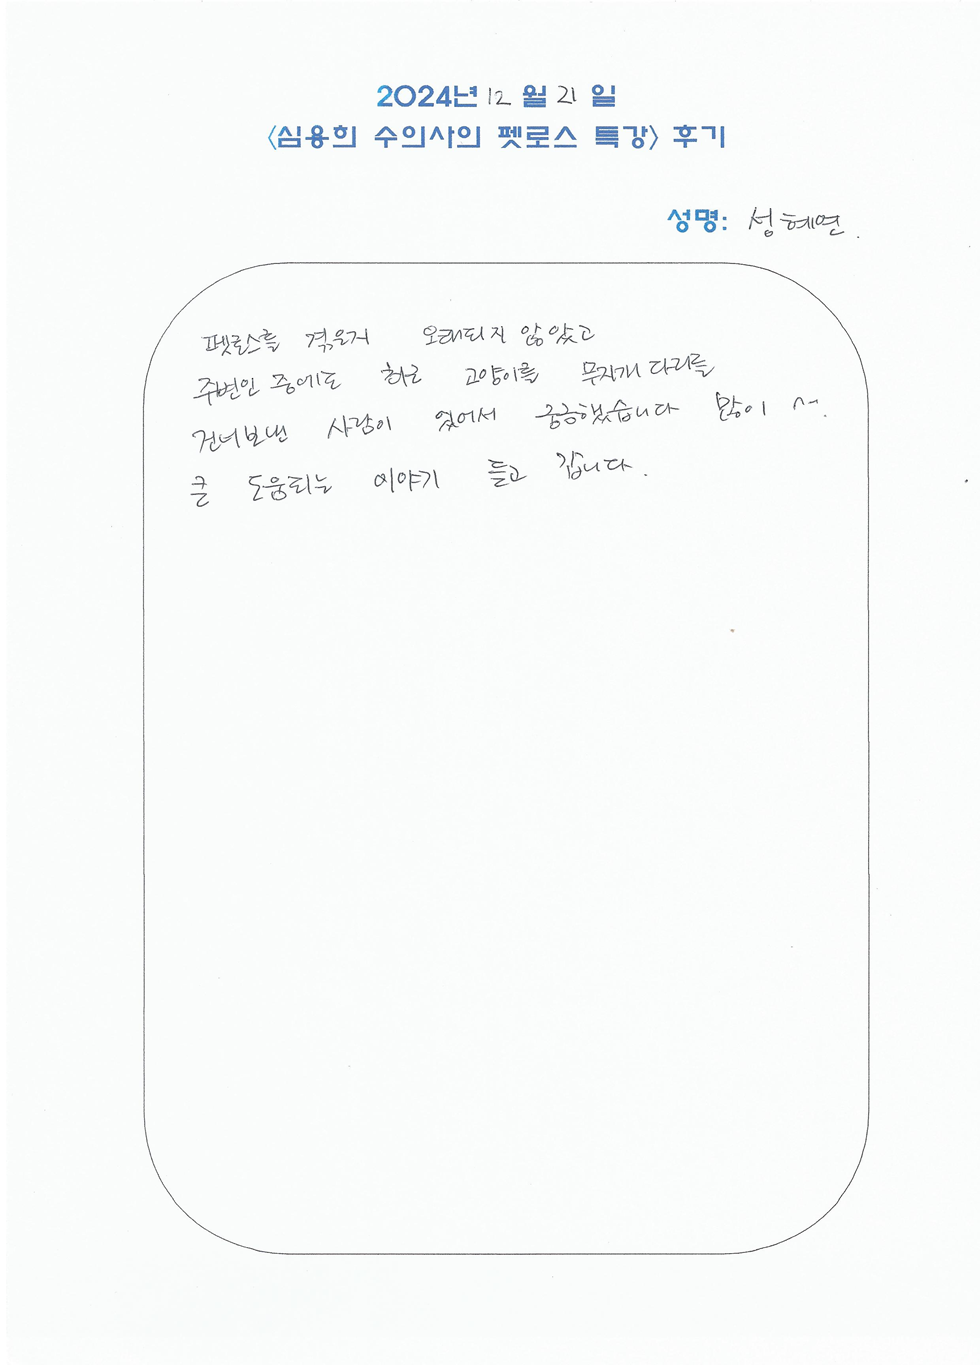 2024년 12 월 21 일
<심용희 수의사의 펫로스 특강> 후기
성명: 성혜연.
펫로스를 겪은거 오래되지 않았고
주변인 중에도 하루 고양이를 무지개 다리를
건너보낸 사람이 있어서 궁금했습니다 많이
큰 도움되는 이야기 듣고 갑니다.